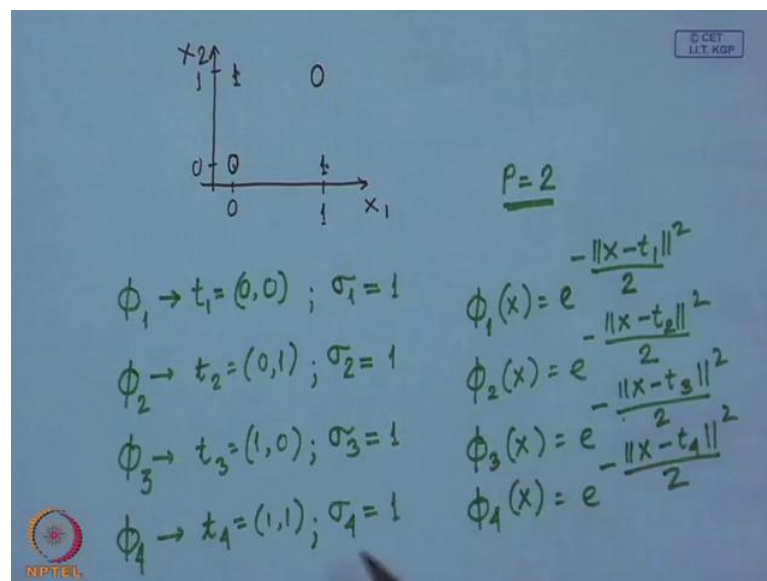 © CET
I.I.T. KGP
x2
1 1 0
0 0 1
0 1 x1
P=2
ϕ1 → t1 = (0,0) ; σ1 = 1
ϕ2 → t2 = (0,1) ; σ2 = 1
ϕ3 → t3 = (1,0) ; σ3 = 1
ϕ4 → t4 = (1,1) ; σ4 = 1
ϕ1(x) = e^(-||x-t1||²/2)
ϕ2(x) = e^(-||x-t2||²/2)
ϕ3(x) = e^(-||x-t3||²/2)
ϕ4(x) = e^(-||x-t4||²/2)
NPTEL